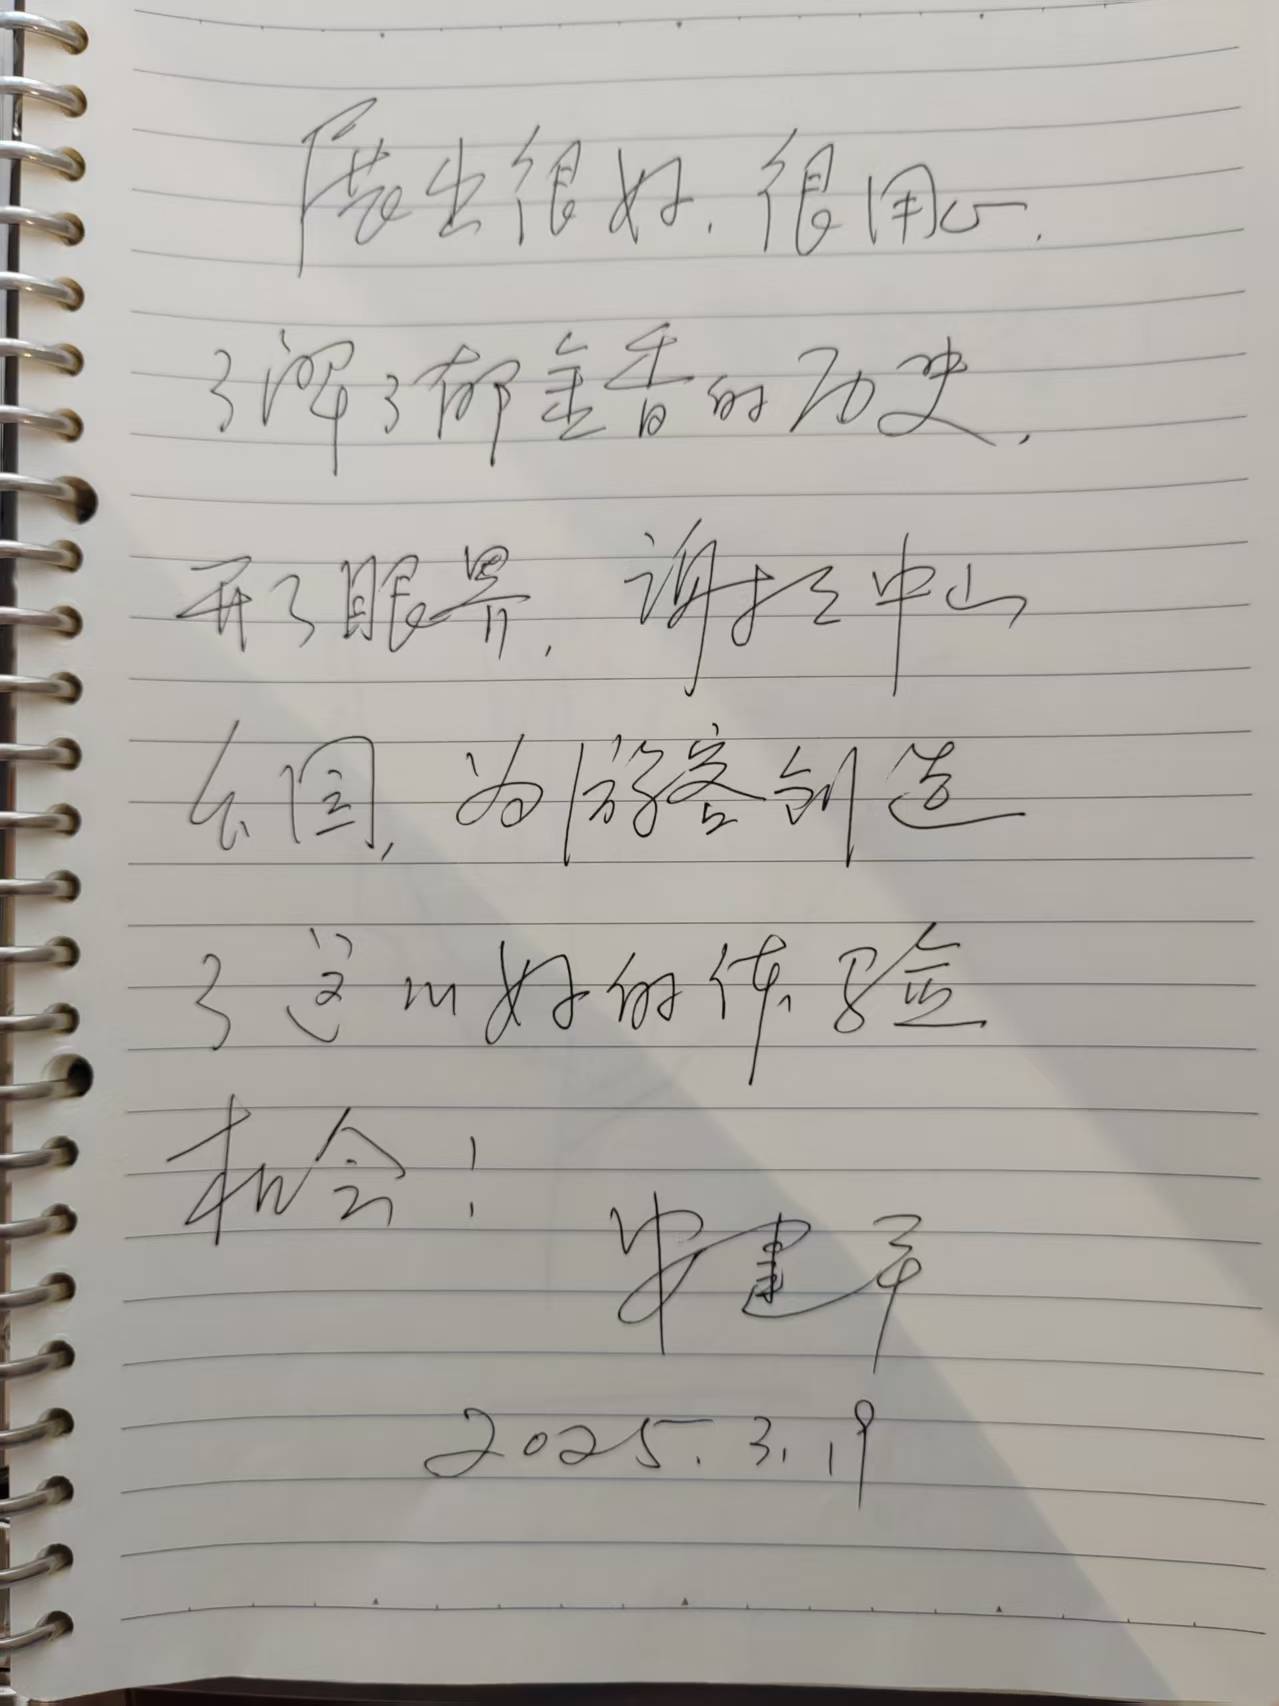 展出很好,很用心,
了解了郁金香的历史,
开了眼界,谢授中山
公园,为游客创造
了这么好的体验
机会!
建平
2025.3.19